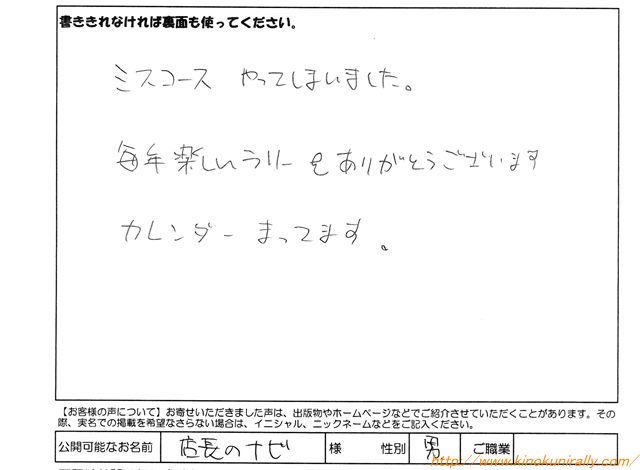 書ききれなければ裏面も使ってください。
ミスコース やってしまいました。
毎年楽しいラリーをありがとうございます
カレンダー まってます。
【お客様の声について】お寄せいただきました声は、出版物やホームページなどでご紹介させていただくことがあります。その
際、実名での掲載を希望なさらない場合は、イニシャル、ニックネームなどをご記入ください。
公開可能なお名前 店長のナビ 様 性別 男 ご職業
http://www.kinokunirally.com/